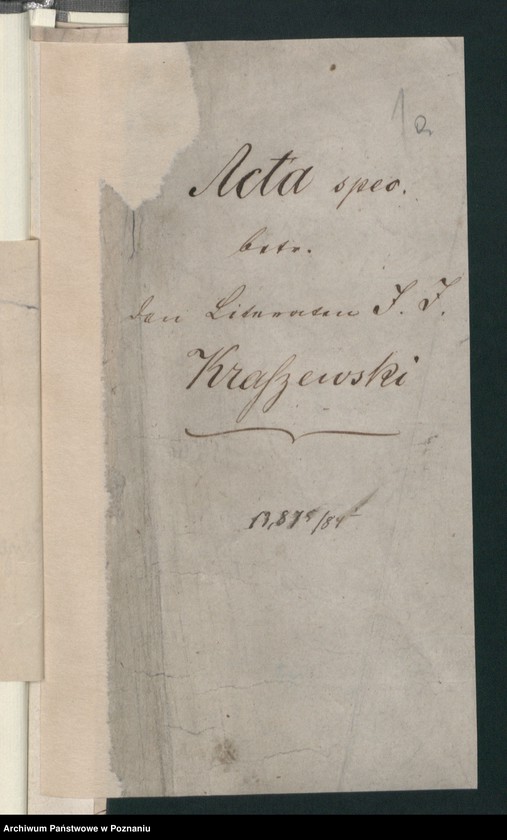 Acta spec.
betr.
den Literaten J. J.
Kraszewski
Archiwum Państwowe w Poznaniu